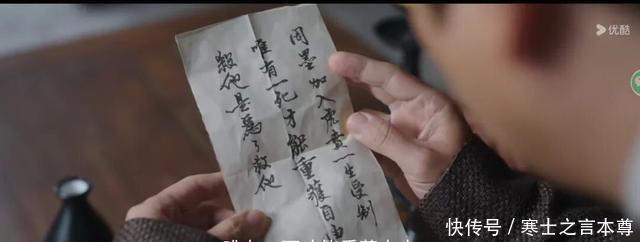 优酷
周墨加入虎賁一生受制
唯有一死才能重獲自由
殺他是爲了救他
快传号 / 寒士之言本尊